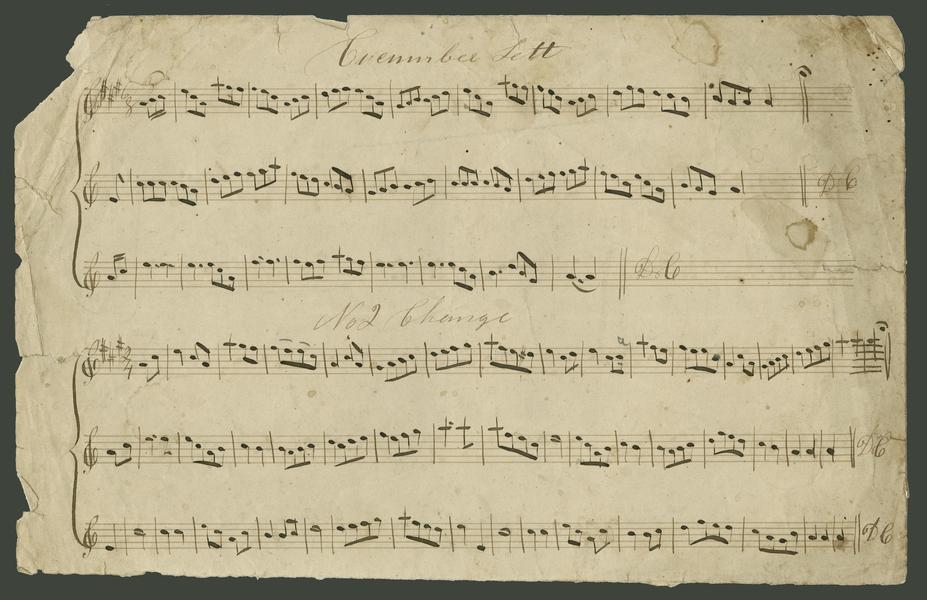 Sett
D C
D.C
No 2 Change
D C
D C